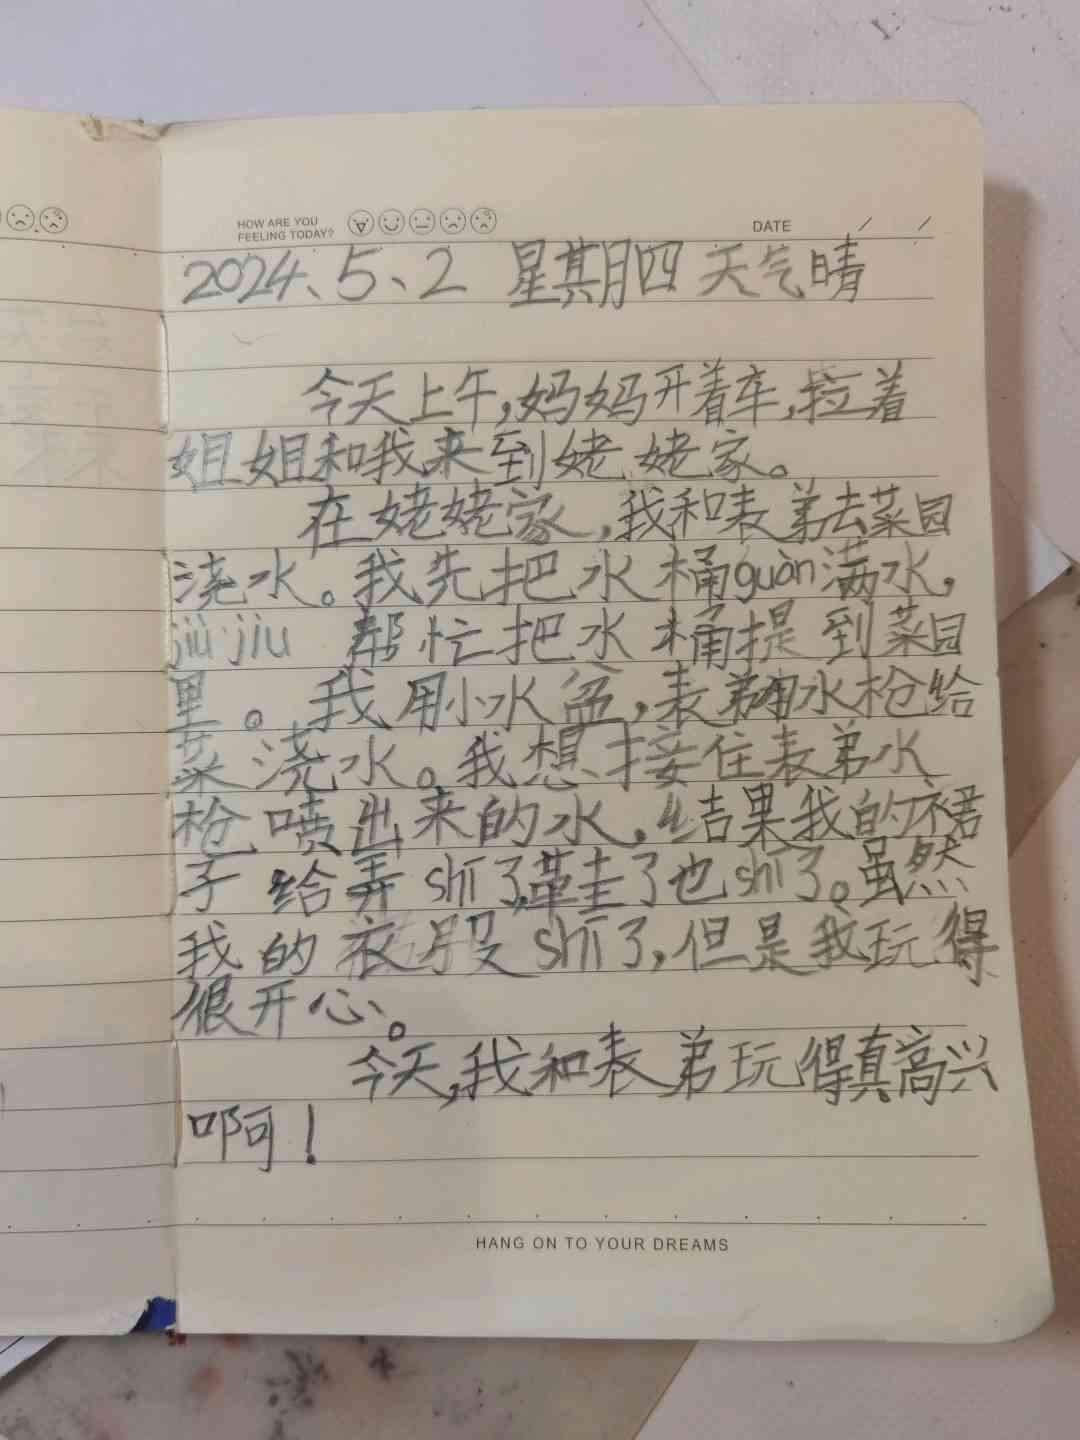 HOW ARE YOU
FEELING TODAY?
DATE / /
2024、5、2 星期四 天气晴
今天上午,妈妈开着车,拉着
姐姐和我来到姥姥家。
在姥姥家,我和表弟去菜园
浇水。我先把水桶guàn满水,
jiù jiu 帮忙把水桶提到菜园
里。我用小水盆,表弟用水枪给
菜浇水。我想接住表弟水
枪喷出来的水,结果我的裙
子给弄shī了,鞋了也shī了。虽然
我的衣服shī了,但是我玩得
很开心。
今天,我和表弟玩得真高兴
啊!
HANG ON TO YOUR DREAMS